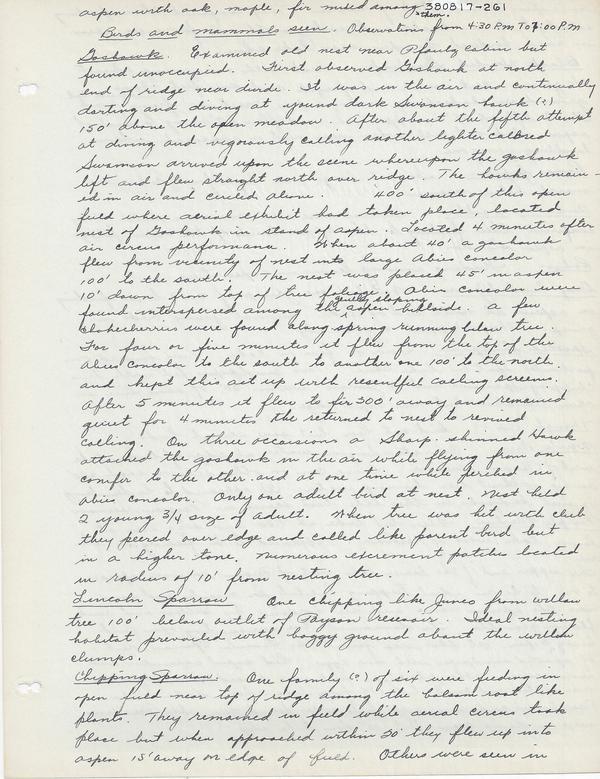 aspen with oak, maple, fir mixed among them. 380817-261
Birds and mammals seen. Observations from 4:30 P.M To 7:00 P.M
Goshawk. Examined old nest near Pfautz cabin but
found unoccupied. First observed Goshawk at north
end of ridge near divide. It was in the air and continually
darting and diving at young dark Swanson hawk (?)
150' above the open meadow. After about the fifth attempt
at diving and vigorously calling another lighter colored
Swanson arrived upon the scene whereupon the goshawk
left and flew straight north over ridge. The hawks remain-
ed in air and circled alone. 400' south of this open
field where aerial exhibit had taken place, located
nest of Goshawk in stand of aspen. Located 4 minutes after
air circus performance. When about 40' a goshawk
flew from vicinity of nest into large Abies concolor
100' to the south. The nest was placed 45' in aspen
10' down from top of tree foliage. Abies concolor were
found interspersed among the gently sloping aspen hillside. a few
chokecherries were found along spring running below tree.
For four or five minutes it flew from the top of the
Abies concolor to the south to another one 100' to the north
and kept this act up with resentful calling screams.
After 5 minutes it flew to fir 300' away and remained
quiet for 4 minutes the returned to nest to revived
calling. On three occasions a Sharp-shinned Hawk
attacked the goshawk in the air while flying from one
conifer to the other and at one time while perched in
Abies concolor. Only one adult bird at nest. Nest held
2 young 3/4 size of adult. When tree was hit with club
they peered over edge and called like parent bird but
in a higher tone. Numerous excrement patches located
in radius of 10' from nesting tree.
Lincoln Sparrow One chipping like Junco from willow
tree 100' below outlet of Payson resevoir. Ideal nesting
habitat prevailed with boggy ground about the willow
clumps.
Chipping Sparrow. One family (?) of six were feeding in
open field near top of ridge among the balsam root like
plants. They remained in field while aerial circus took
place but when approached within 30' they flew up into
aspen 15' away on edge of field. Others were seen in